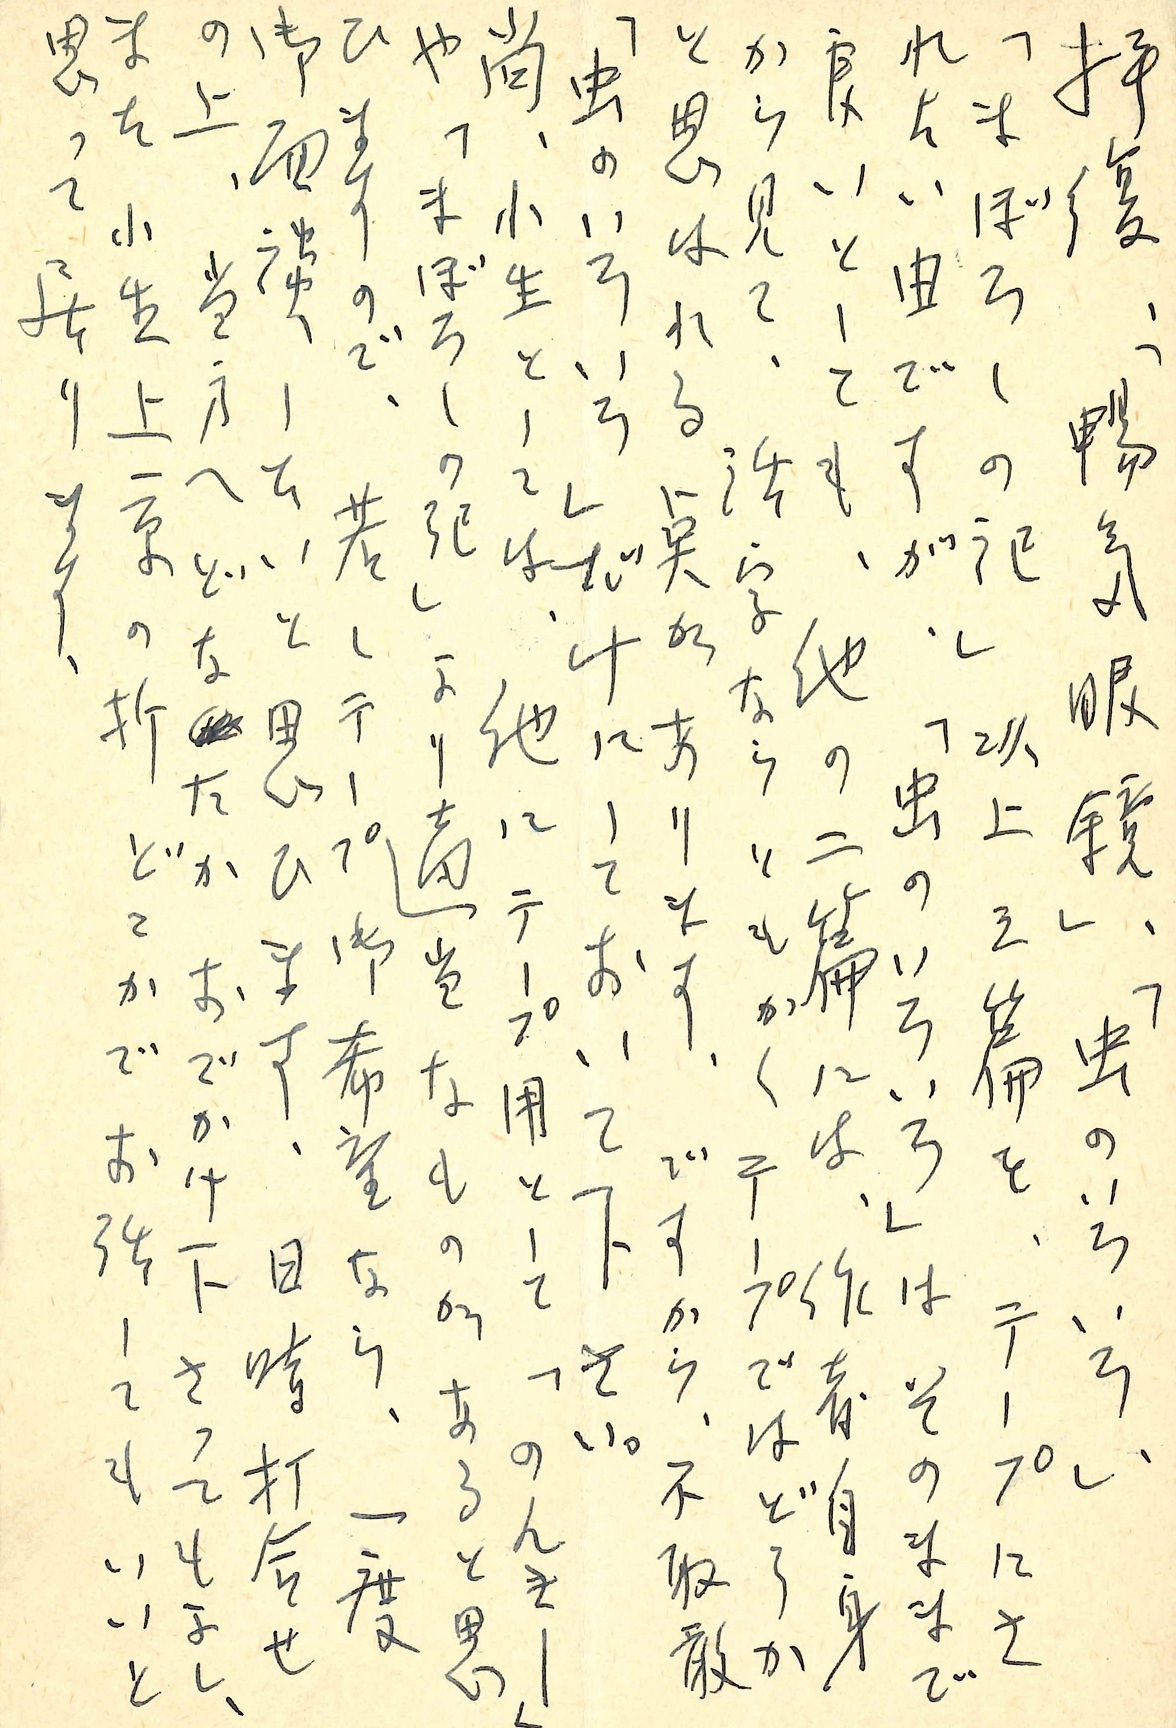 拝復、「暢気眼鏡」、「虫のいろいろ」、
「まぼろしの記」以上三篇を、テープにさ
れたい由ですが、「虫のいろいろ」は そのままで
良いとしても、他の二篇には、作者自身
から見て、活字ならともかく テープではどうか
と思はれる点があります、ですから、不取敢
「虫のいろいろ」だけにしておいて下さい。
尚、小生としては、他にテープ用として「のんき」
や「まぼろしの記」より適当なものがあると思
ひますので、若しテープ御希望なら、一度
御面談したいと思ひます、日時打合せ
の上、当方へどなたか おでかけ下さってもよし、
また小生上京の折 どこかでお話してもいいと
思って居ります、